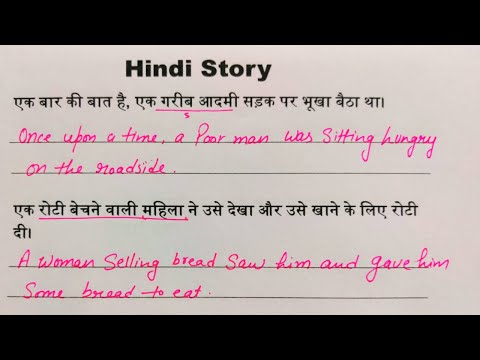 Hindi Story
एक बार की बात है, एक गरीब आदमी सड़क पर भूखा बैठा था।
Once upon a time, a Poor man was Sitting hungry
on the roadside.
एक रोटी बेचने वाली महिला ने उसे देखा और उसे खाने के लिए रोटी
दी।
A woman Selling bread Saw him and gave him
Some bread to eat.